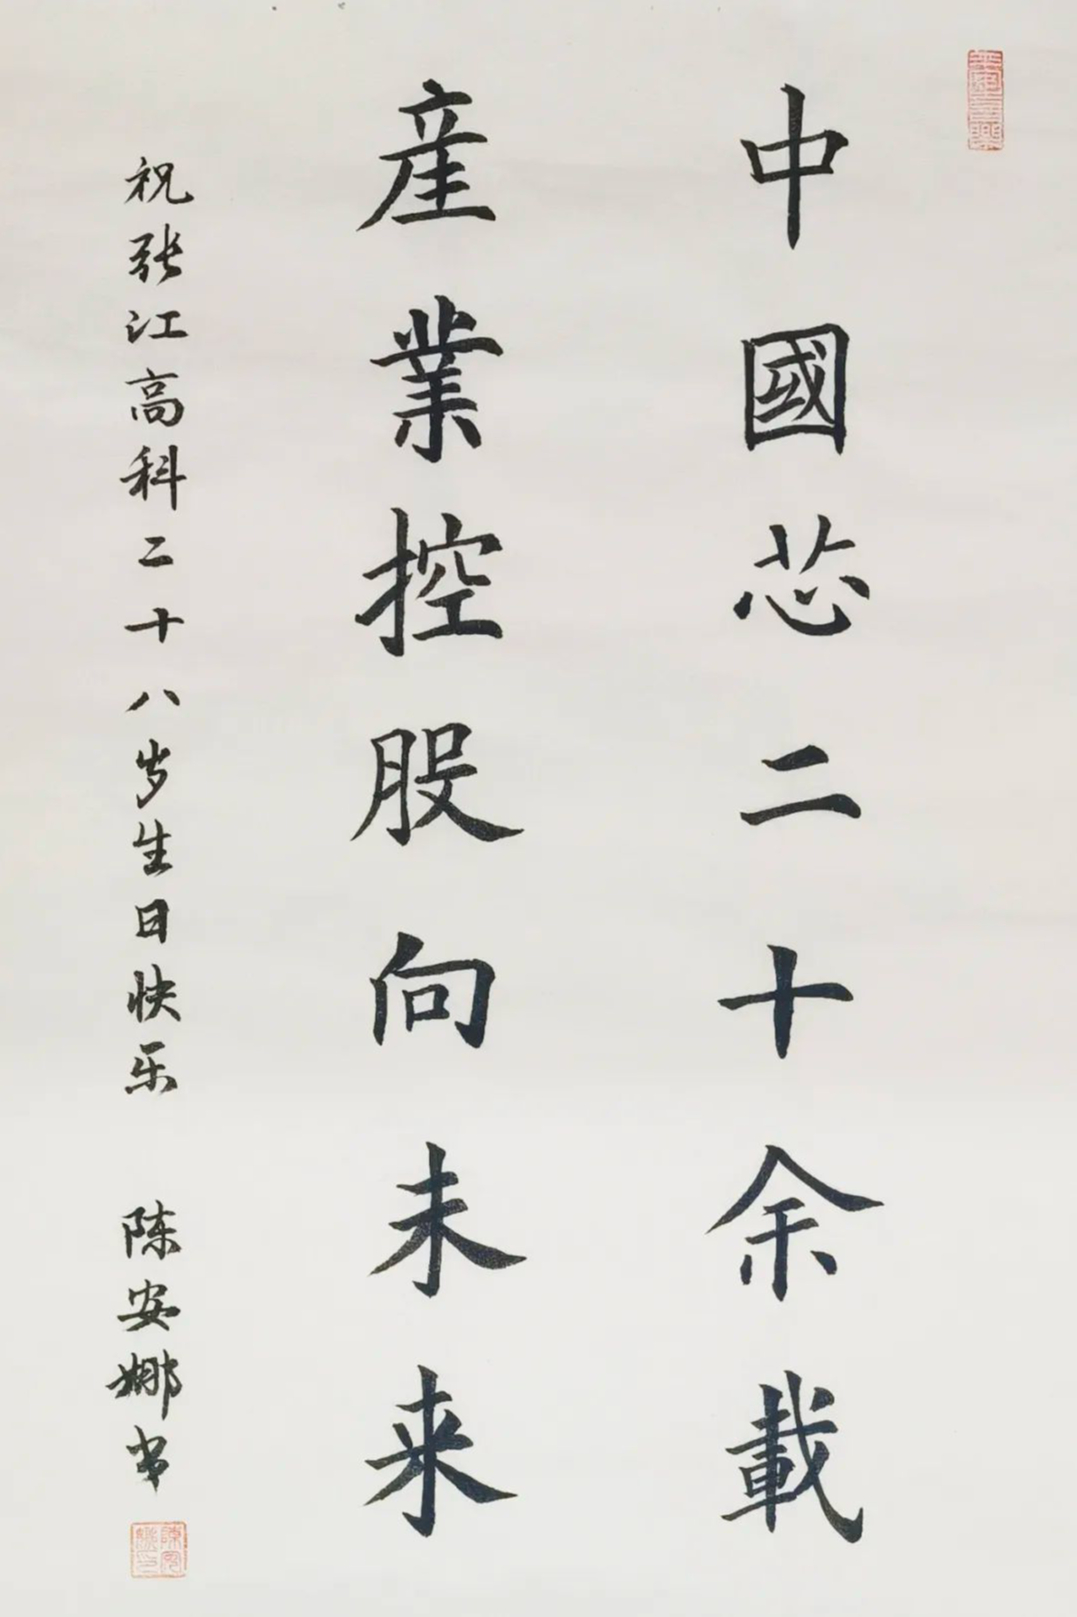 中國芯二十余載
産業控股向未来
祝张江高科二十八岁生日快乐 陈安娜书